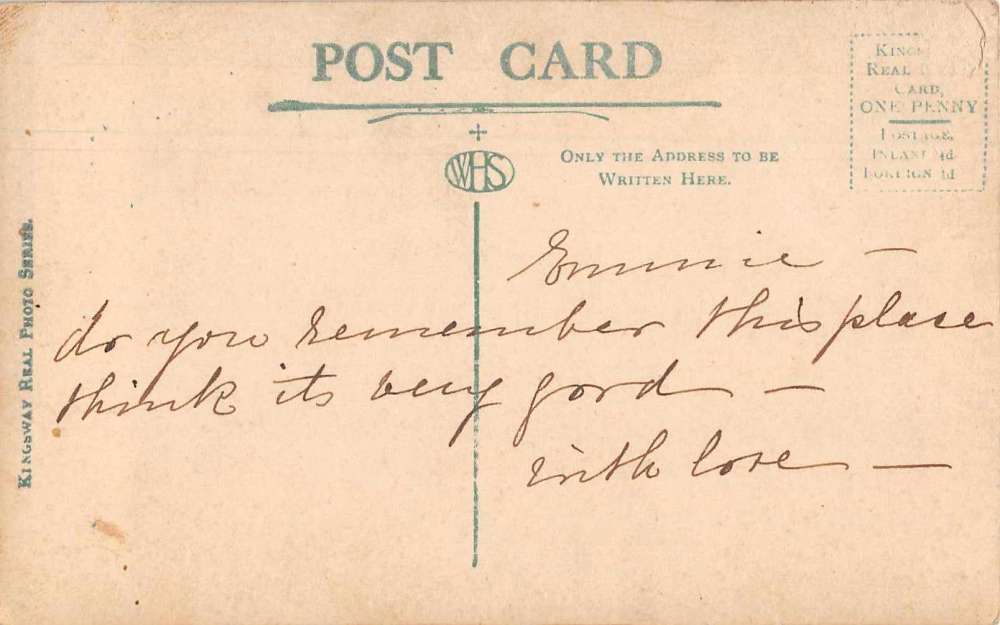 POST CARD
WHS
ONLY THE ADDRESS TO BE
WRITTEN HERE.
KINGS
REAL
CARD,
ONE PENNY
POSTAGE,
INLAND ½d
FOREIGN 1d
KINGSWAY REAL PHOTO SERIES.
Emmie —
do you remember this place
think its very good —
with love —